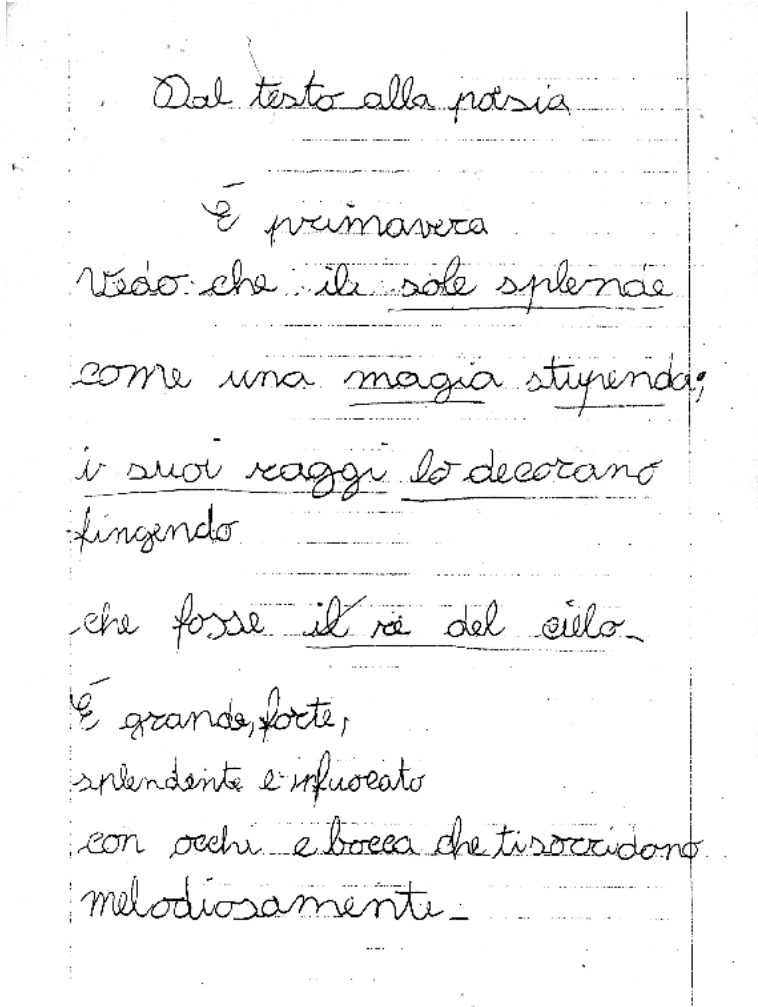 Dal testo alla poesia
È primavera
Vedo che il sole splende
come una magia stupenda;
i suoi raggi lo decorano
fingendo
che fosse il re del cielo.
È grande, forte,
splendente e infuocato
con occhi e bocca che ti sorridono
melodiosamente.